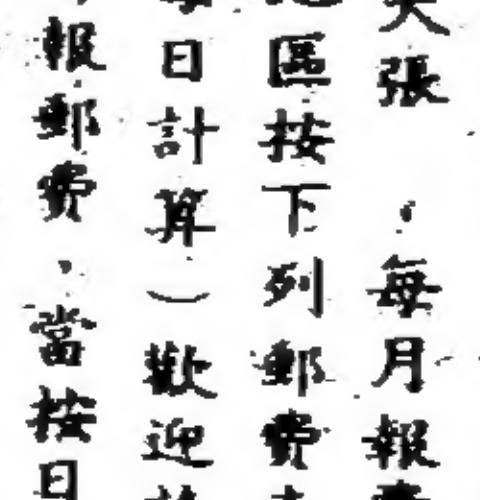 大張，每月報
區按下列郵費
日計算）歡迎
報郵費，當按日